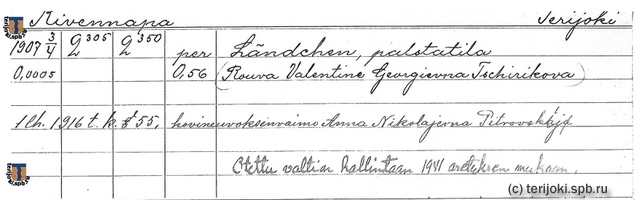 Kivennapa Terijoki
1907 3/4 2 305 2 350 per Ländchen, palstatila
0,0005 0,56 (Rouva Valentine Georgievna Tschirikova)
1 lh. 1916 t. k. § 55, hovineuvoksenvaimo Anna Nikolajevna
Otettu valtion hallintaan 1941 asetuksen mukaan.
terijoki.spb.ru
terijoki.spb.ru
(c) terijoki.spb.ru